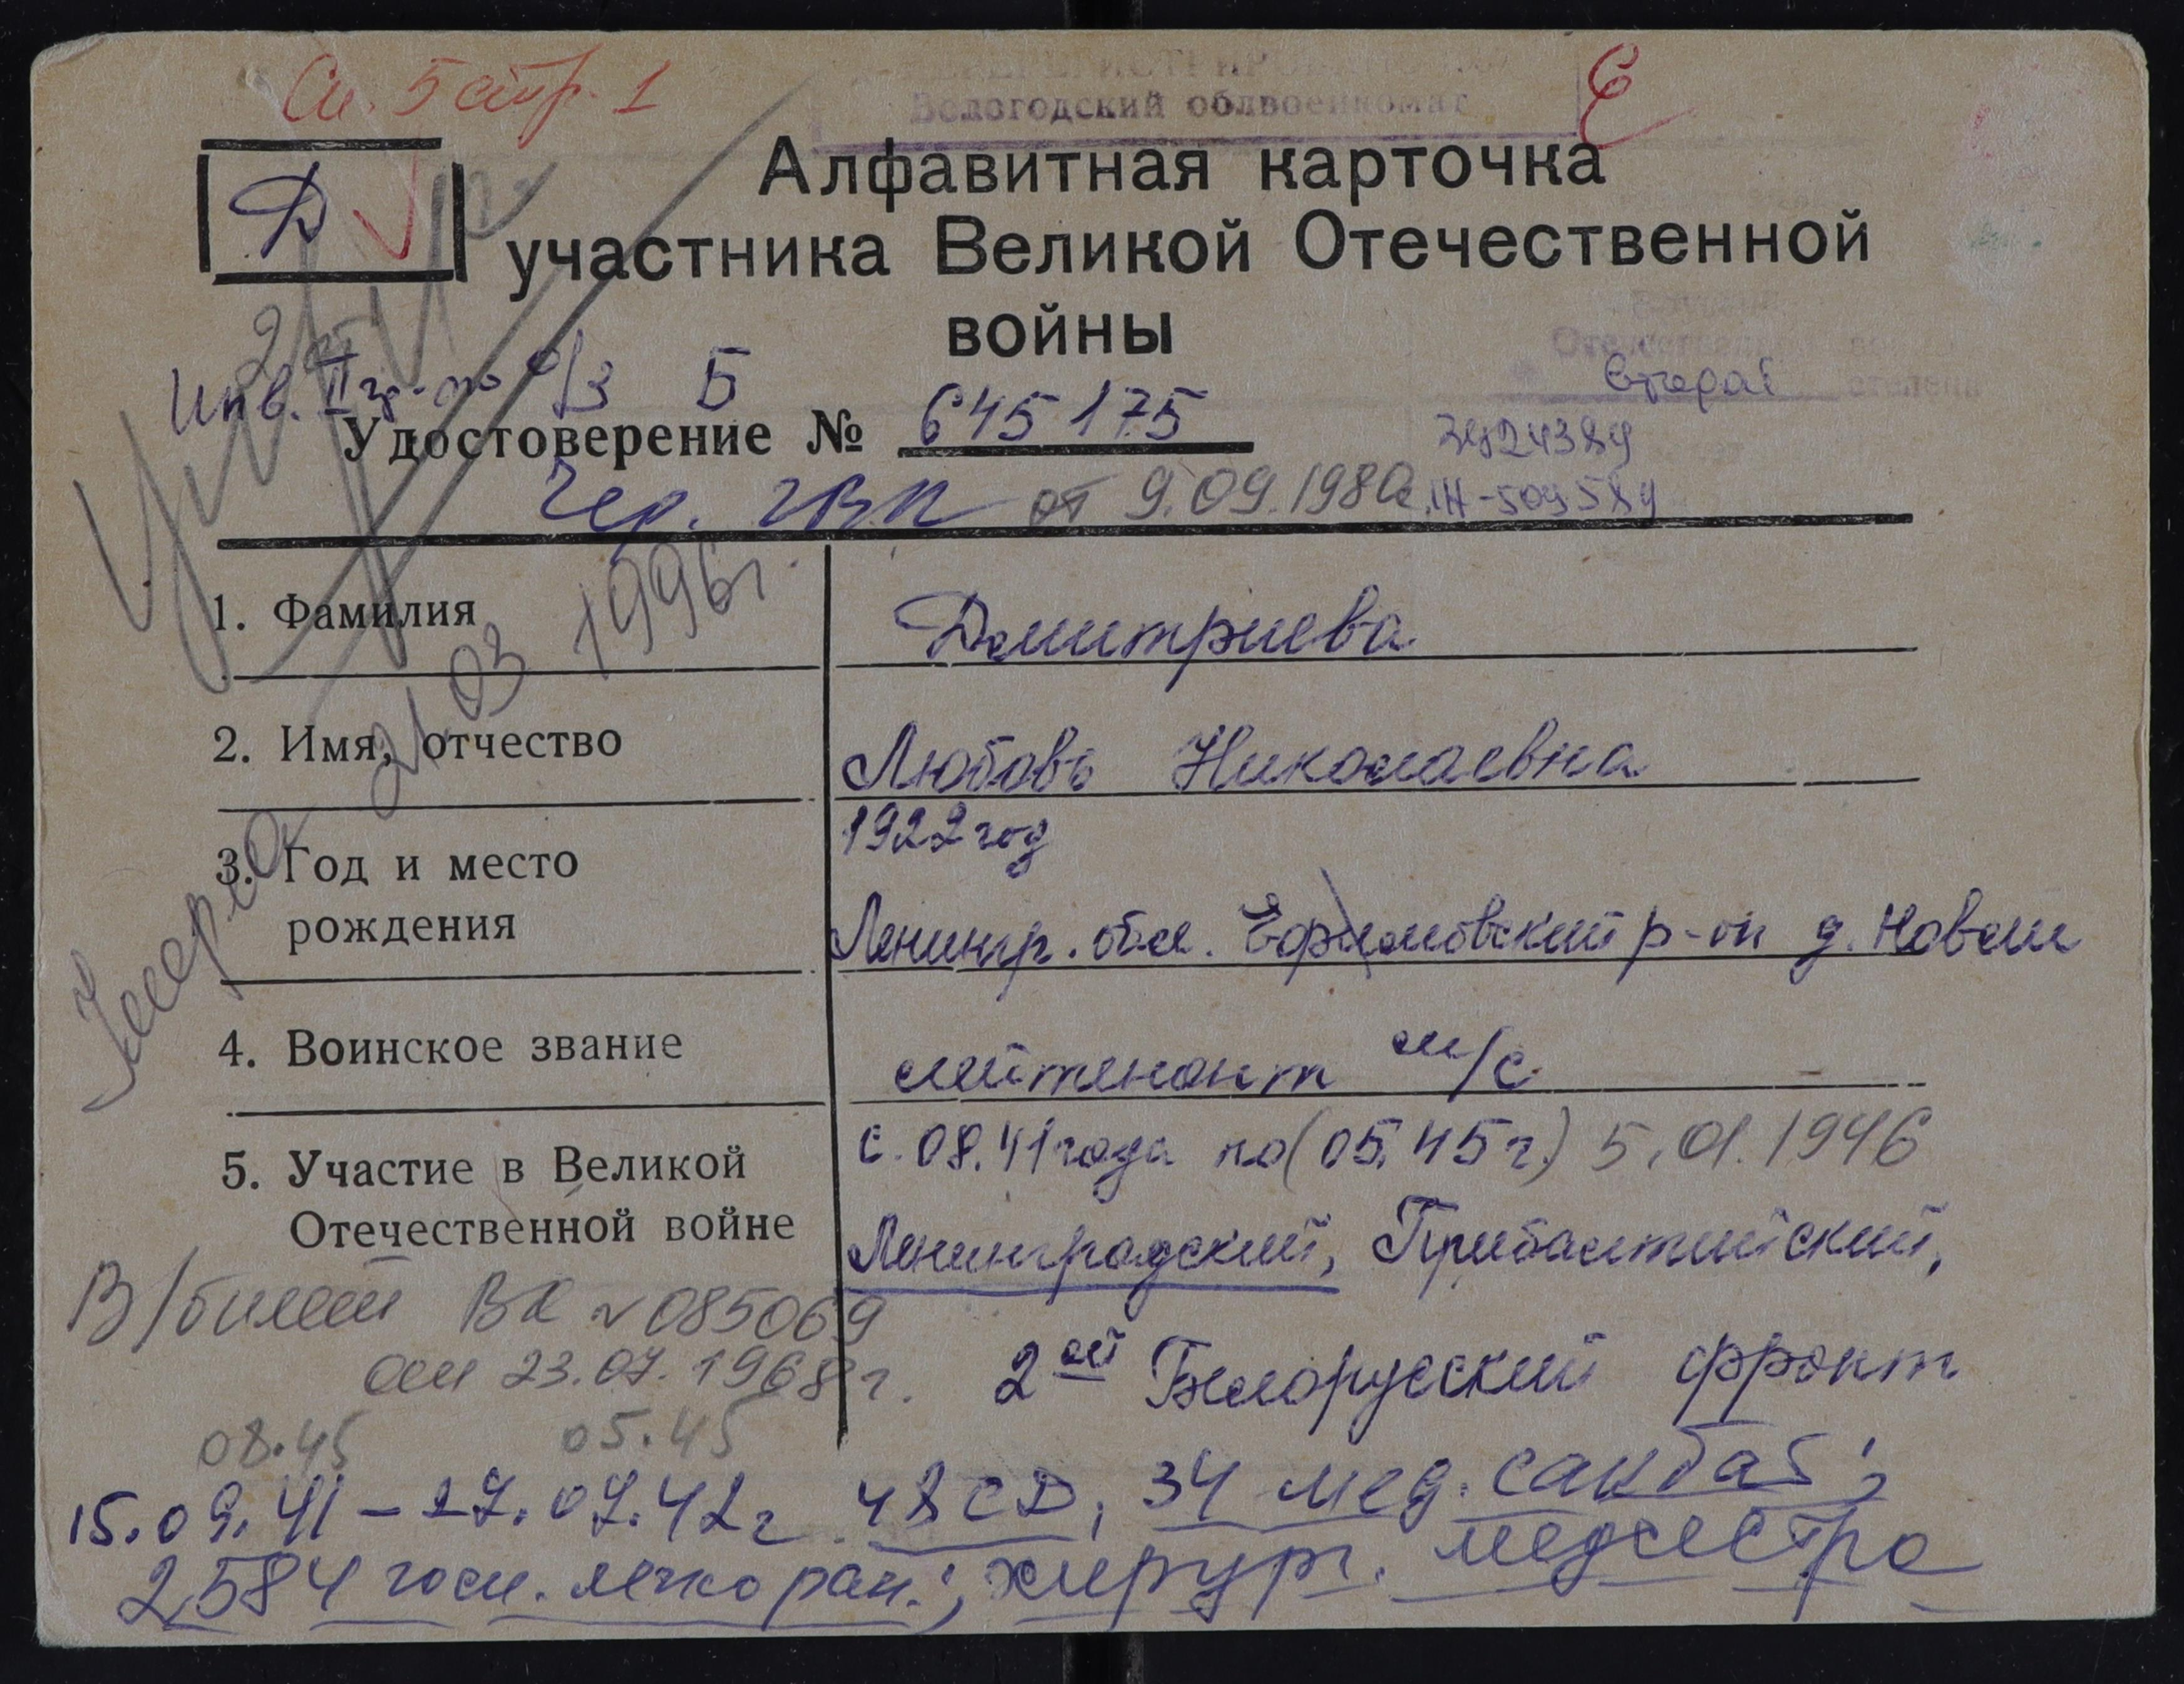 См. 5 стр. 1
Вологодский облвоенкомат
Д
Алфавитная карточка
участника Великой Отечественной
войны
Инв. II гр. по о/з Б
вторая степень
Удостоверение № 645175
3924389
Чер. ГВК от 9.09.1980г.
1. Фамилия
Дмитриева
2. Имя, отчество
Любовь Николаевна
3. Год и место
рождения
1922 год
Ленингр. обл. Ефимовский р-он д.
4. Воинское звание
лейтенант м/с
5. Участие в Великой
Отечественной войне
с 08.41 года по (05.45 г.) 5.01.1946
Ленинградский, Прибалтийский,
2ой Белорусский фронт
Умерла 21 03 1996г.
В/билет № 085069
от 23.07.1968 г.
08.45 05.45
15.09.41 – 27.07.42г 48 СД, 34 мед. санбат;
2584 госп. легкоран.; хирург. медсестра